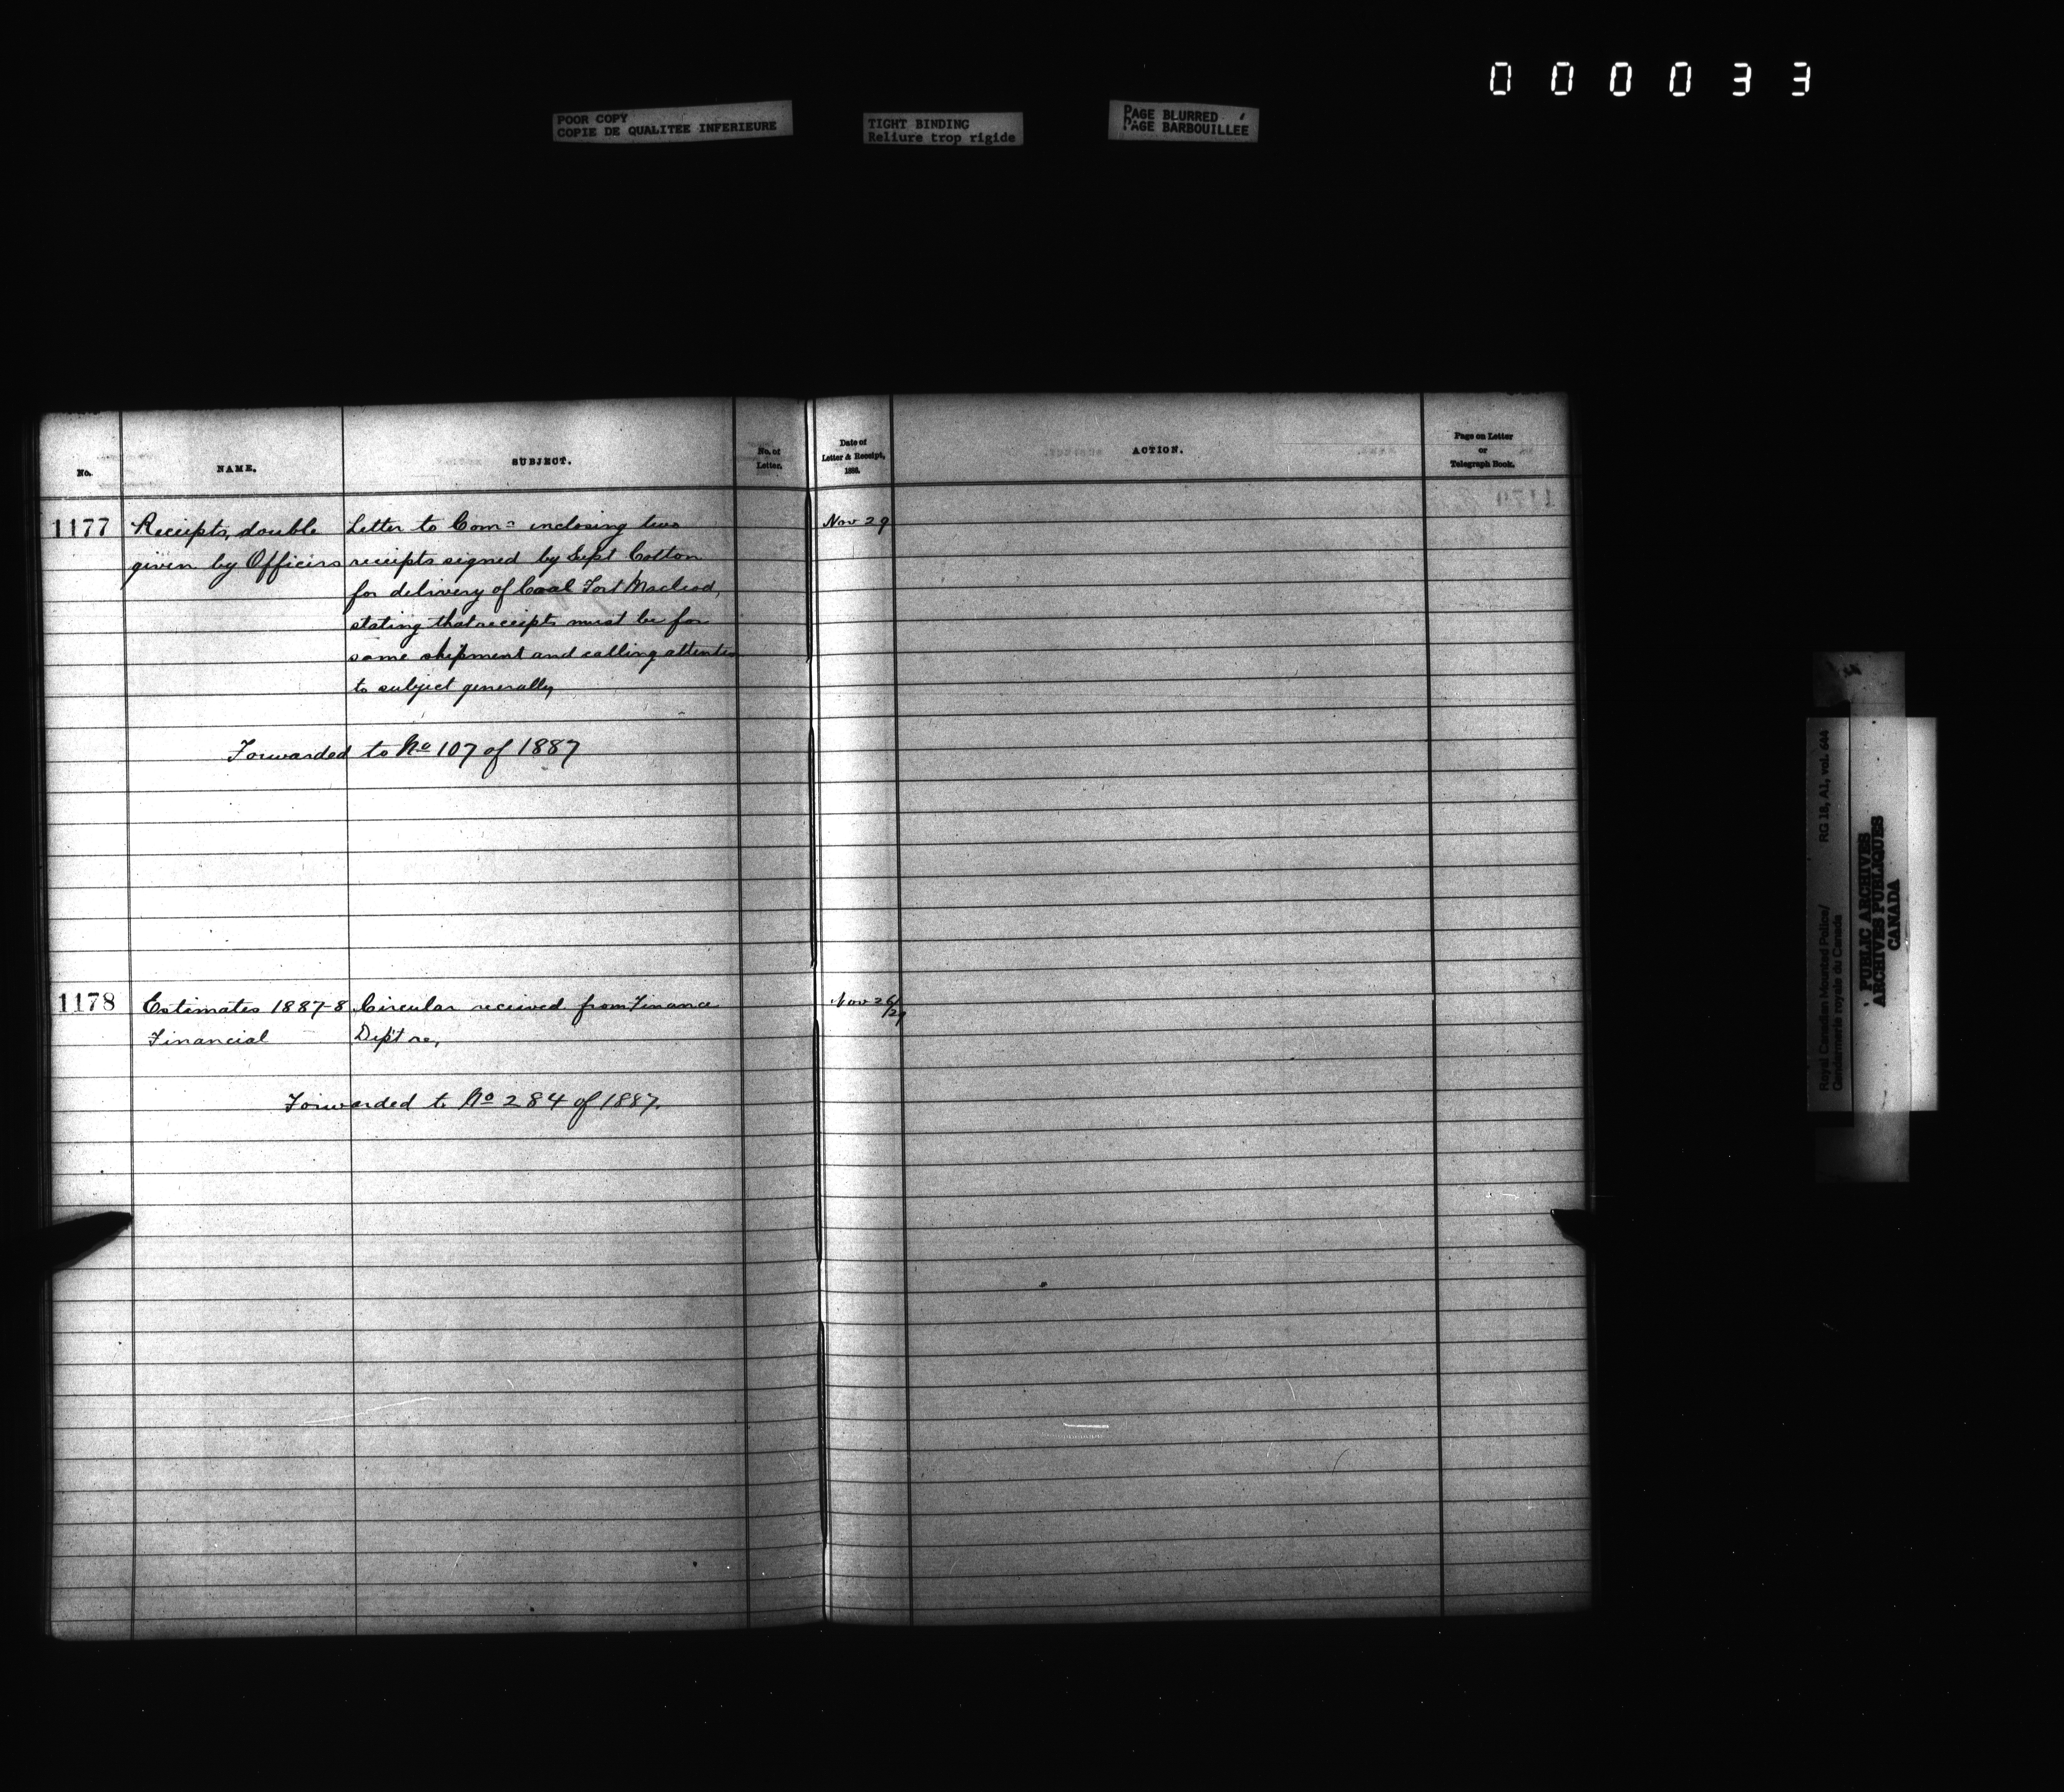 000033
POOR COPY
COPIE DE QUALITEE INFERIEURE
TIGHT BINDING
Reliure trop rigide
PAGE BLURRED
PAGE BARBOUILLEE
No.
NAME.
SUBJECT.
No. of
Letter.
Date of
Letter & Receipt,
188 .
ACTION.
Page on Letter
or
Telegraph Book.
1177 Receipts, double Letter to Comr inclosing two Nov 29
given by Officers receipts signed by Supt Cotton
for delivery of Coal Fort Macleod,
stating that receipts must be for
same shipment and calling attention
to subject generally
Forwarded to No 107 of 1887
1178 Estimates 1887-8 Circular received from Finance Nov 26/29
Financial Dept re,
Forwarded to No 284 of 1887.
Royal Canadian Mounted Police/
Gendarmerie royale du Canada
RG 18, A1, vol. 644
PUBLIC ARCHIVES
ARCHIVES PUBLIQUES
CANADA